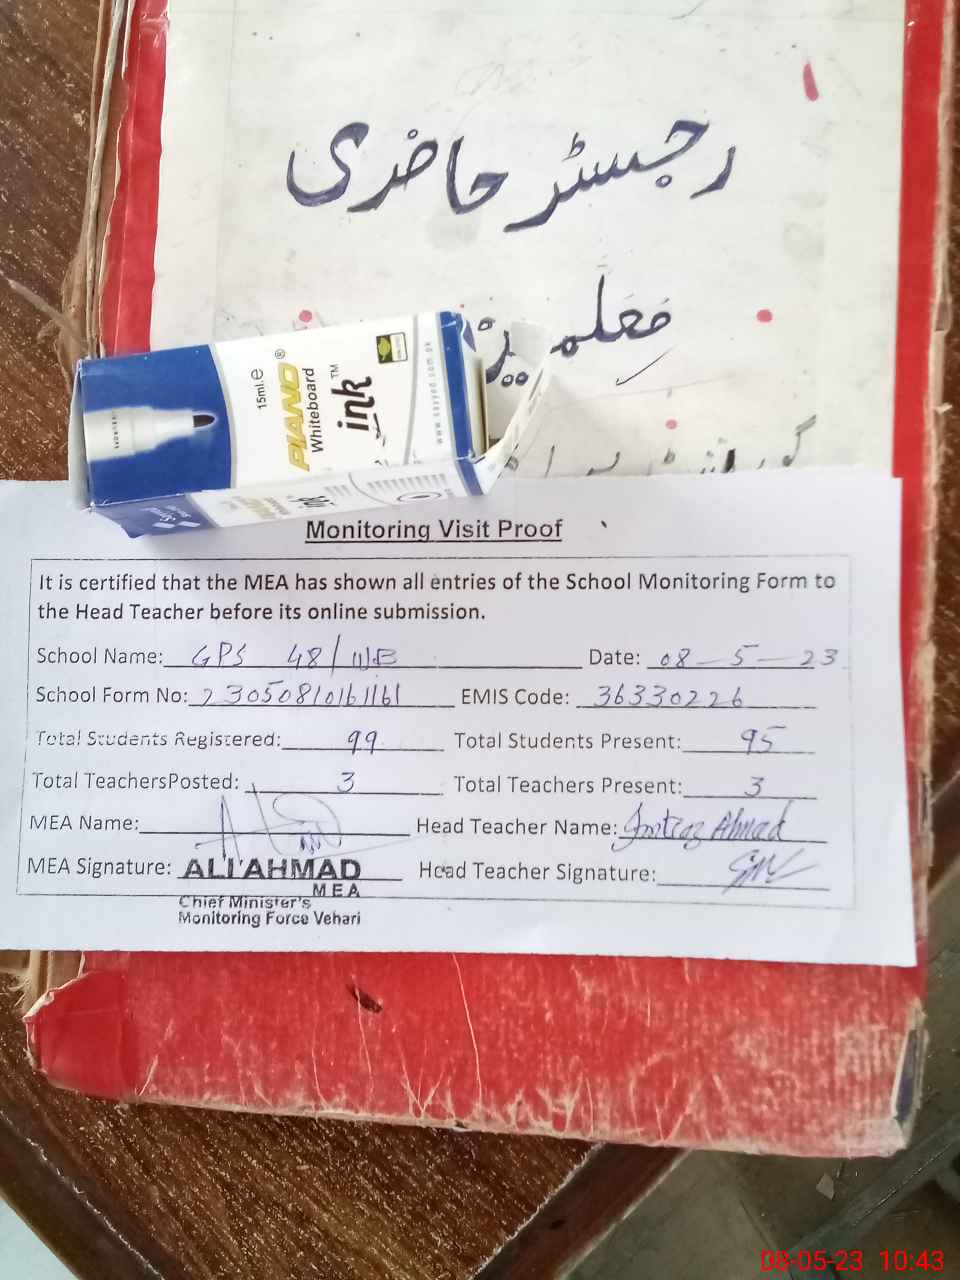 رجسٹر حاضری
معلمین
15ml.e
PIANO®
Whiteboard
ink™
www.sayyed.com.pk
Monitoring Visit Proof
It is certified that the MEA has shown all entries of the School Monitoring Form to
the Head Teacher before its online submission.
School Name: GPS 48/WB Date: 08-5-23
School Form No: 23050810161161 EMIS Code: 36330226
Total Students Registered: 99 Total Students Present: 95
Total TeachersPosted: 3 Total Teachers Present: 3
MEA Name: Head Teacher Name: Imtiaz Ahmad
MEA Signature: ALI AHMAD Head Teacher Signature:
MEA
Chief Minister's
Monitoring Force Vehari
08-05-23 10:43